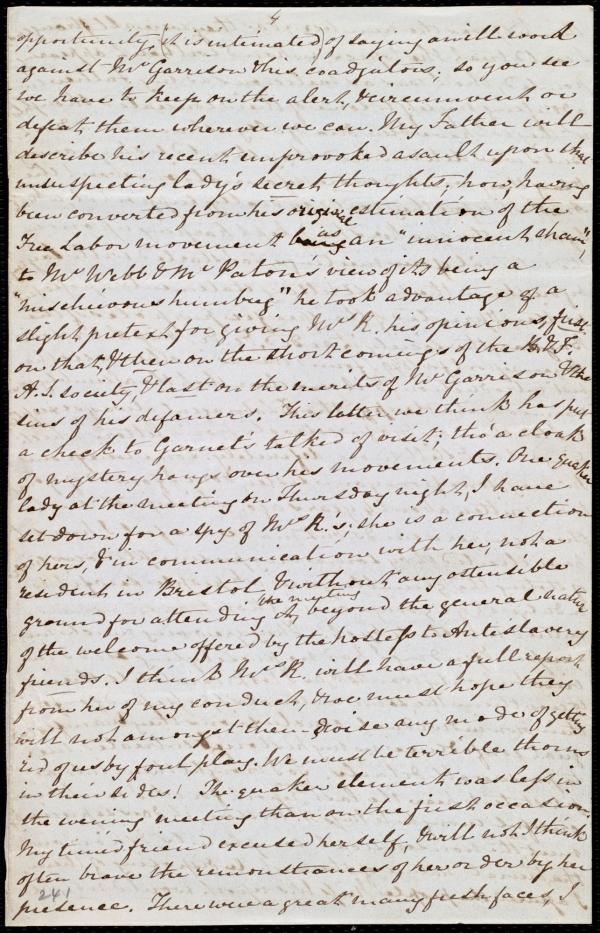 4
opportunity, it is intimated, of saying an ill word
against Mr Garrison & his coadjutors; so you see
we have to keep on the alert, & circumvent or
defeat them wherever we can. My Father will
describe his recent unprovoked assault upon that
unsuspecting lady's secret thoughts, how, having
been converted from his original estimation of the
Free Labor movement being as an "innocent sham",
to Mr Webb & Mr Paton's view of its being a
"mischievous humbug" he took advantage of a
slight pretext for giving Mrs R. his opinions, first
on that, & then on the short comings of the B. & F.
A. S. society, & last on the merits of Mr Garrison & the
sins of his defamers. This latter we think has put
a check to Garnet's talked of visit; tho' a cloak
of mystery hangs over his movements. One quaker
lady at the meeting on Thursday night, I have
set down for a spy of Mrs R.'s; she is a connection
of hers, & in communication with her, not a
resident in Bristol, & without any ostensible
ground for attending the meeting beyond the general nature
of the welcome offered by the hostess to Antislavery
friends. I think Mrs R. will have a full report
from her of my conduct, & we must hope they
will not amongst them devise any mode of getting
rid of us by foul play. We must be terrible thorns
in their sides! The quaker element was less in
the evening meeting than on the first occasion.
My timid friend excused herself, & will not I think
often brave the remonstrances of her order by her
presence. There were a great many fresh faces, I
241